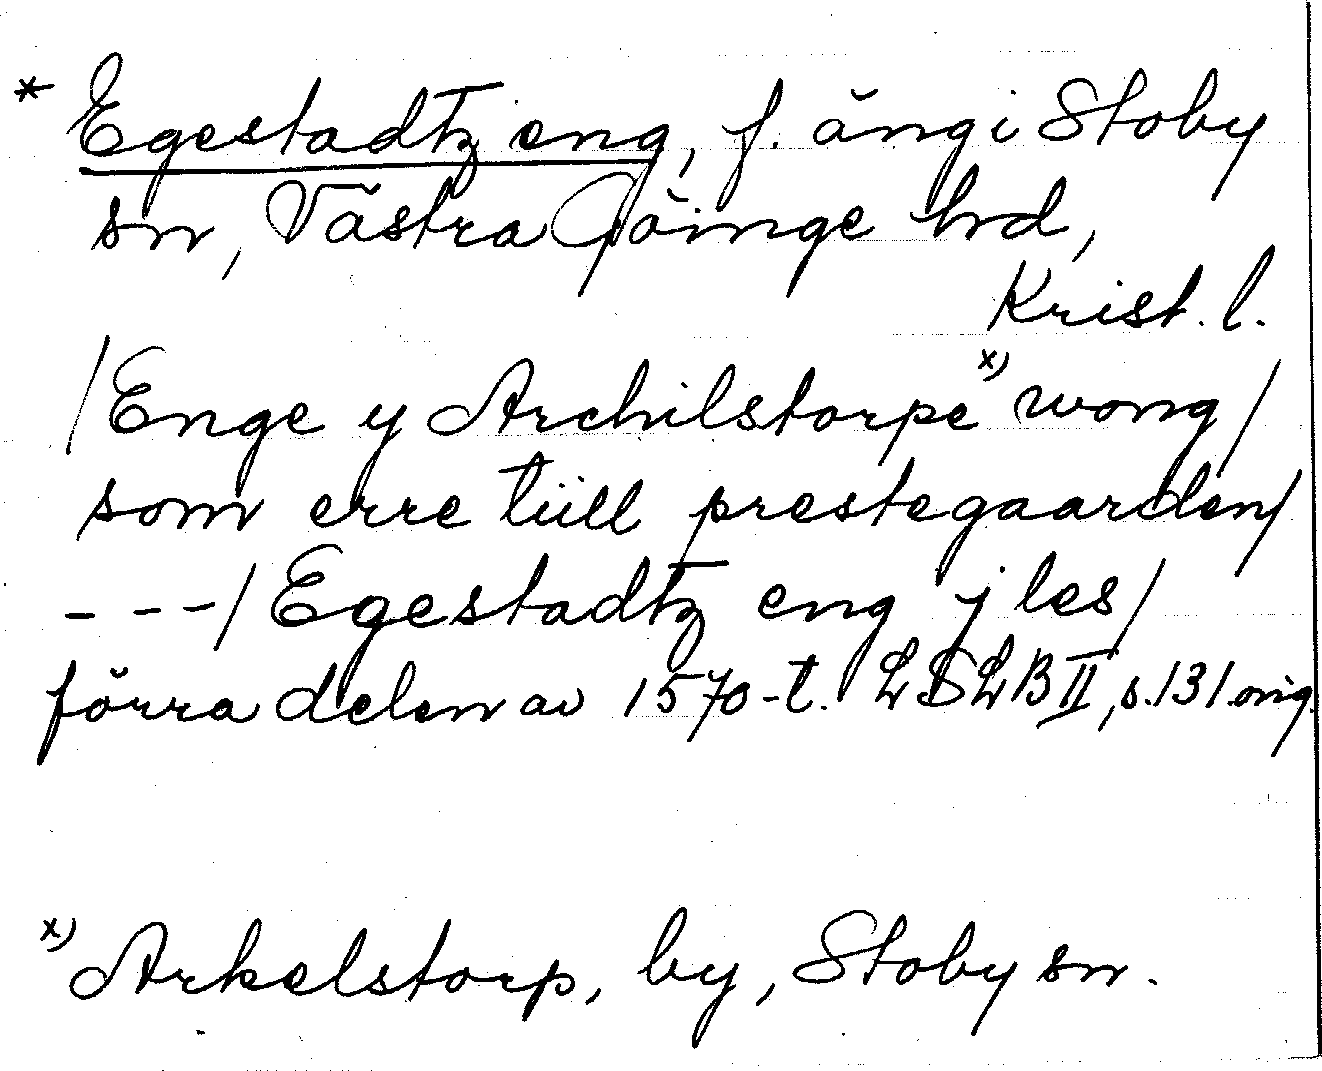 * Egestadtz eng, f. äng i Stoby
sn, Västra Göinge hd,
Krist. l.
/Enge y Archilstorpe x) wong/
som erre tüll prestegaarden/
- - -/ Egestadtz eng j les/
förra delen av 1570-t. LSLB II, s. 131 orig.
x) Arkelstorp, by, Stoby sn.